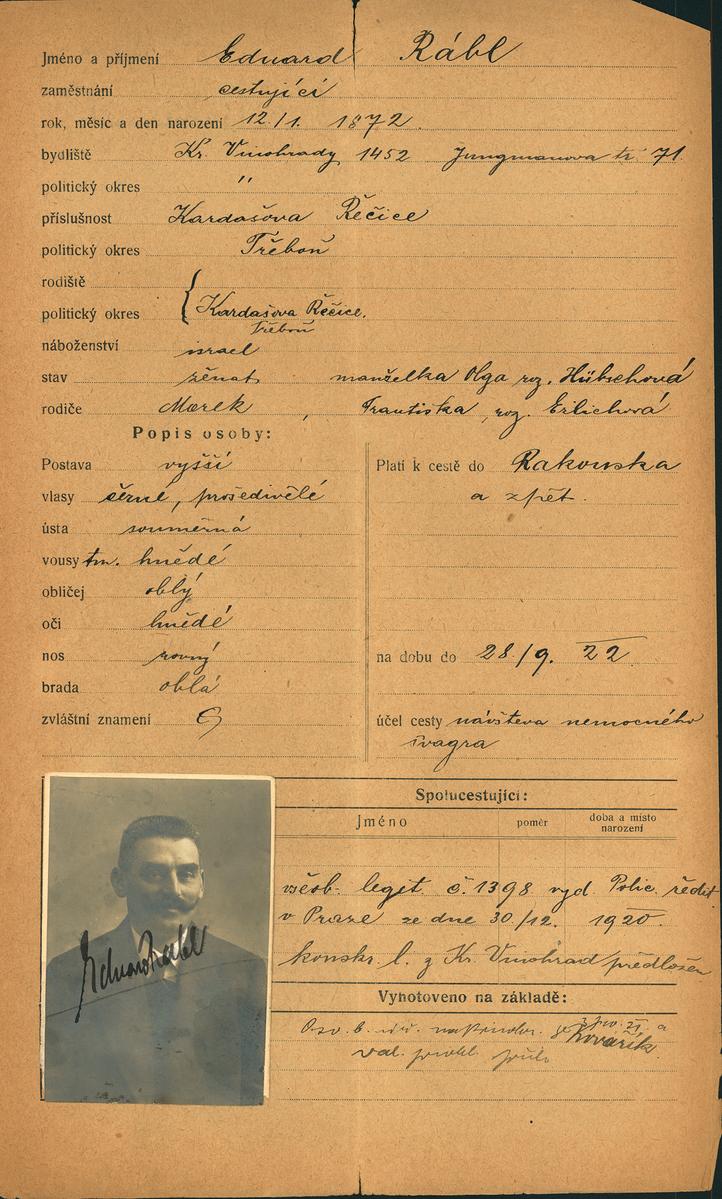 Jméno a příjmení Eduard Rábl
zaměstnání cestující
rok, měsíc a den narození 12/1. 1872.
bydliště Kr. Vinohrady 1452 Jungmanova tř. 71.
politický okres "
příslušnost Kardašova Řečice
politický okres Třeboň
rodiště
politický okres { Kardašova Řečice.
Třeboň
náboženství israel
stav ženat, manželka Olga roz. Hübschová
rodiče Marek, Františka, roz. Erlichová
Popis osoby:
Postava vyšší
vlasy černé, prošedivělé
ústa souměrná
vousy tm. hnědé
obličej oblý
oči hnědé
nos rovný
brada oblá
zvláštní znamení
Platí k cestě do Rakouska
a zpět.
na dobu do 28./9. 22
účel cesty návštěva nemocného
švagra
Spolucestující:
Jméno poměr doba a místo
narození
všeob. legit. č. 1398 vyd. Polic. ředit.
v Praze ze dne 30./12. 1920.
konskr. l. z Kr. Vinohrad předložen
Vyhotoveno na základě:
Kovařík
Eduard Rábl